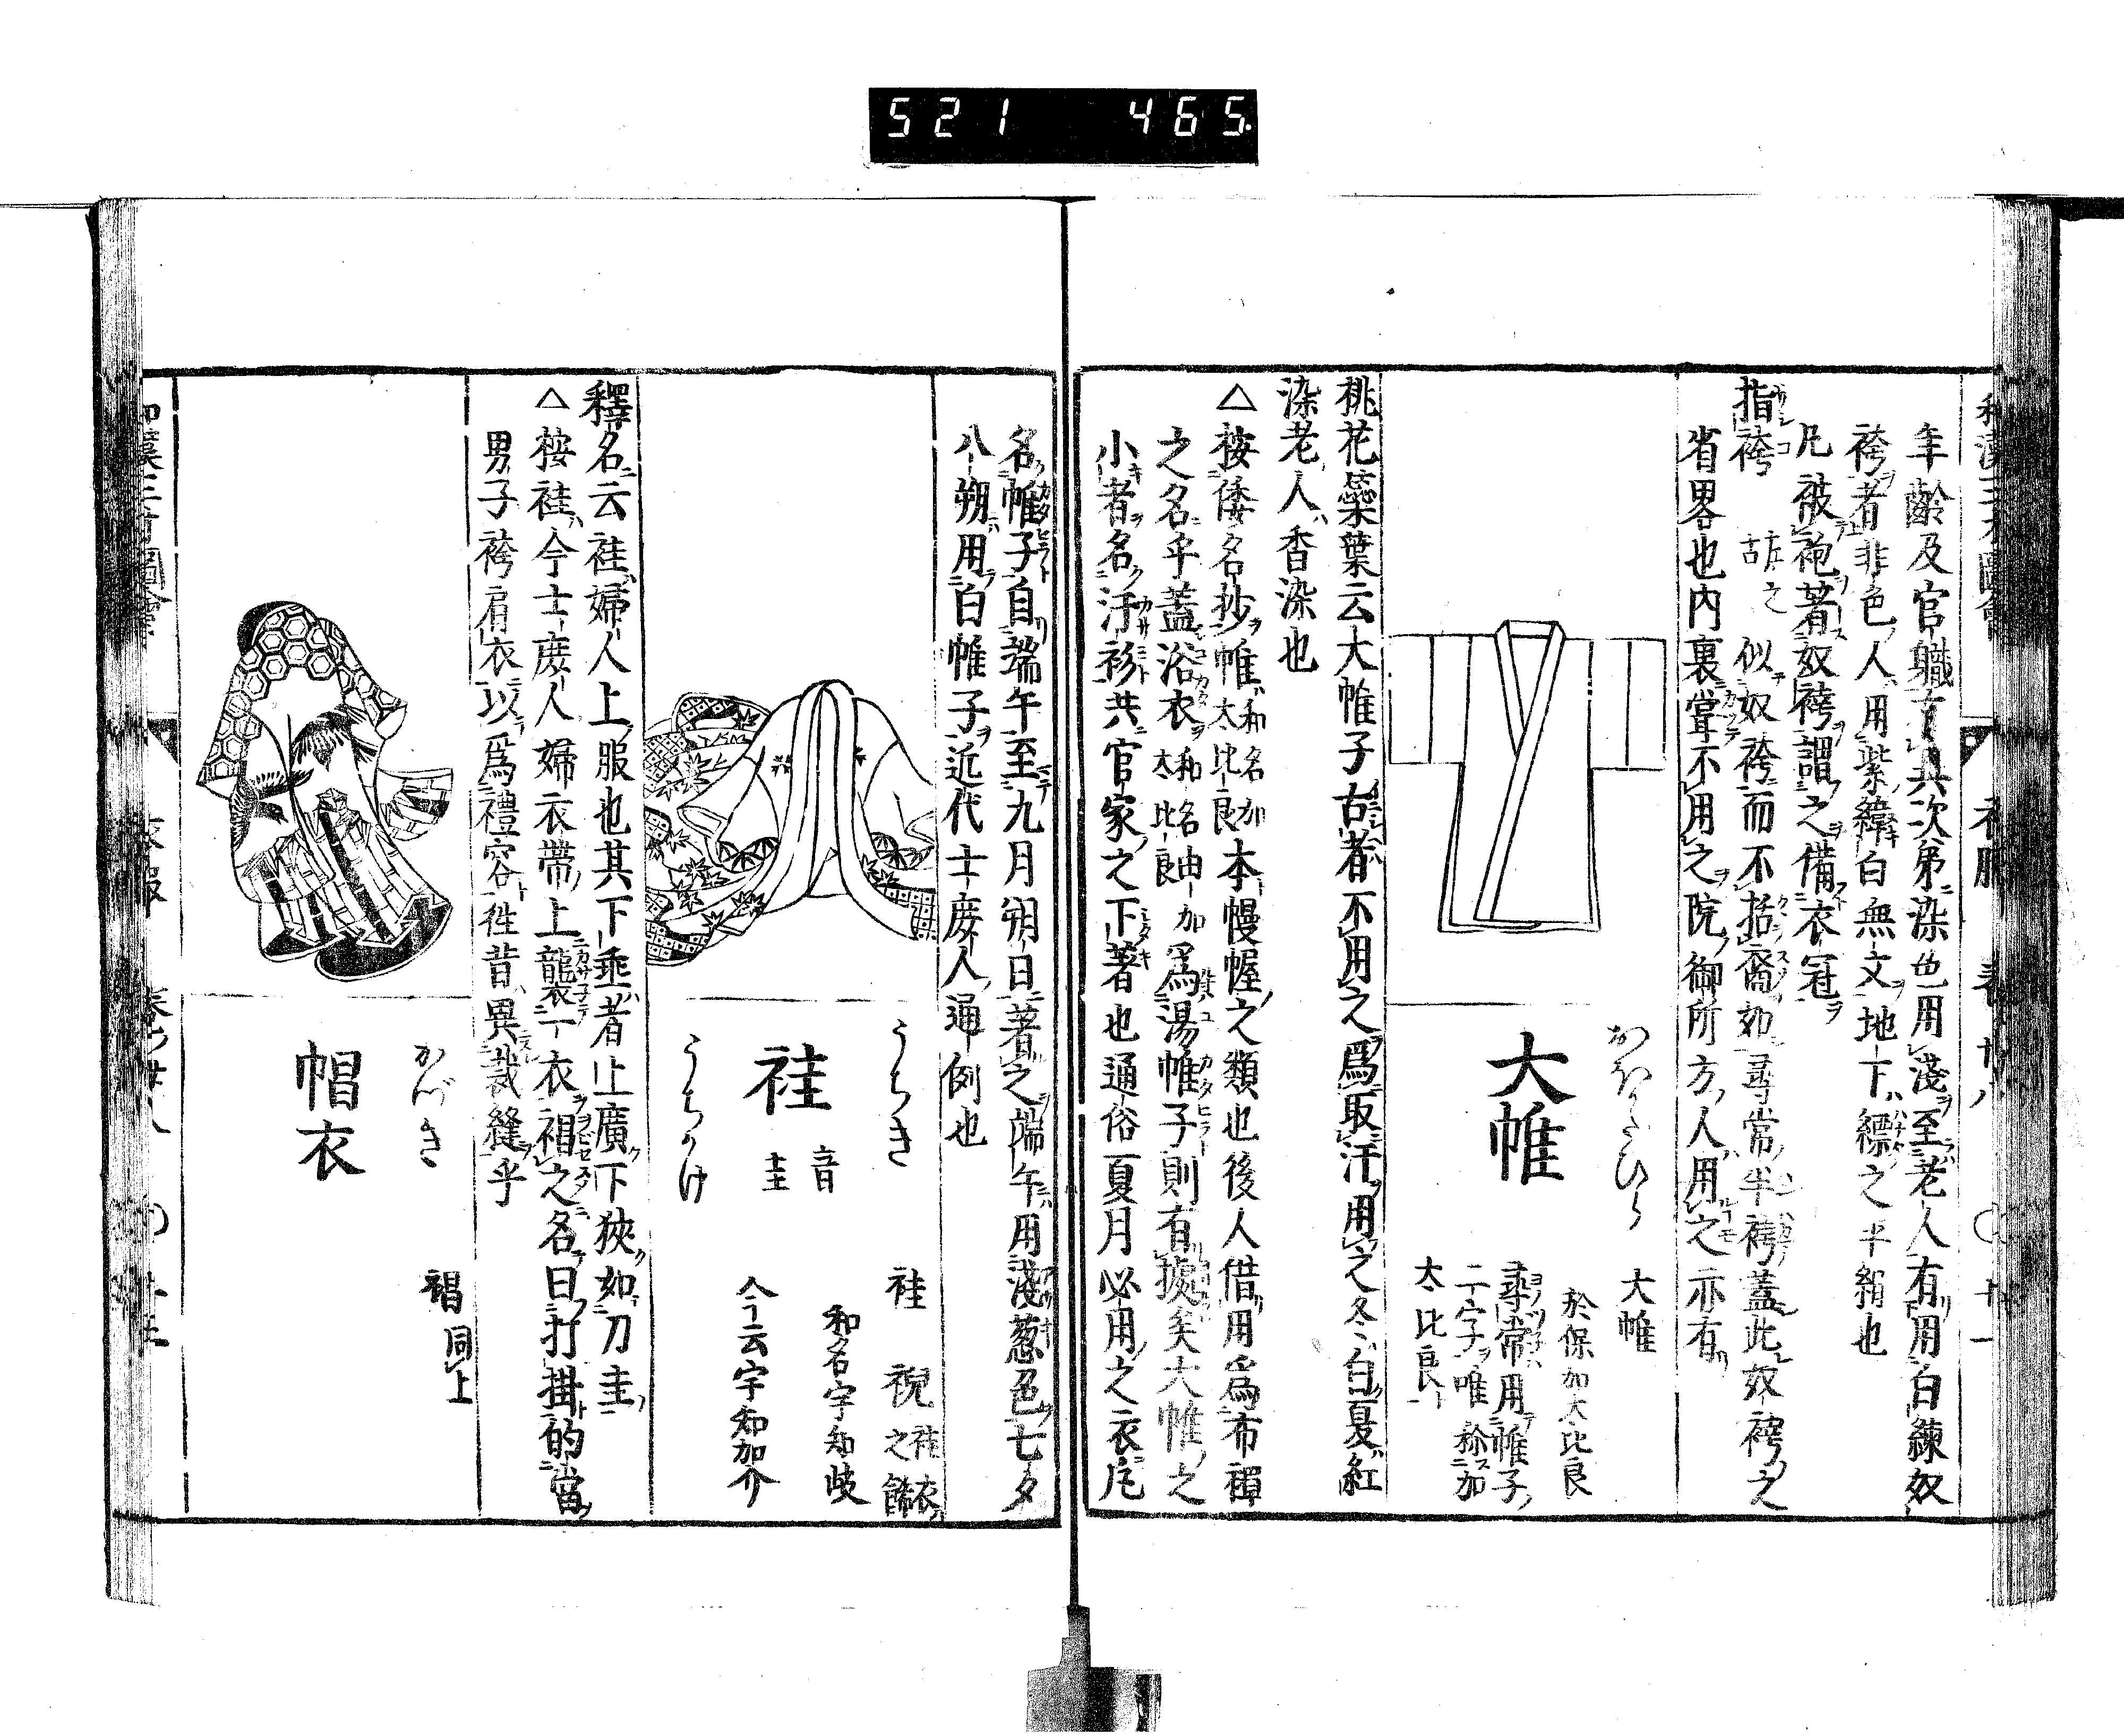 521 465.
年齡及官職高其次第染色用淺至老人有用白練奴
袴者非色人用紫緯白無文地下縹之平絹也
凡被袍著奴袴謂之備衣冠
指袴 似奴袴而不括裔如尋常半袴蓋此奴袴之
省畧也内裏嘗不用之院御所方人用之亦有
大帷
大帷
於保加太比良
尋常用帷子
二字唯稱加
太比良
桃花蘂葉云大帷子古者不用之爲取汗用之冬白夏紅
染老人香染也
△按倭名抄帷和名加太比良本幔幄之類也後人借用爲布襌
之名乎蓋浴衣和名由加太比良爲湯帷子則有據矣大帷之
小者名汗衫共官家之下著也通俗夏月必用之衣凡
名帷子自端午至九月朔日著之端午用淺葱色七夕
八朔用白帷子近代士庶人通例也
うちき
袿 音圭
うちかけ
袿 袿衣之飾
和名宇知岐
今云宇知加介
釋名云袿婦人上服也其下垂者上廣下狹如刀圭
△按袿今士庶人婦衣帶上襲一衣褶之名曰打掛的當
男子袴肩衣以爲禮容徃昔異裁縫乎
かづき
帽衣
同上